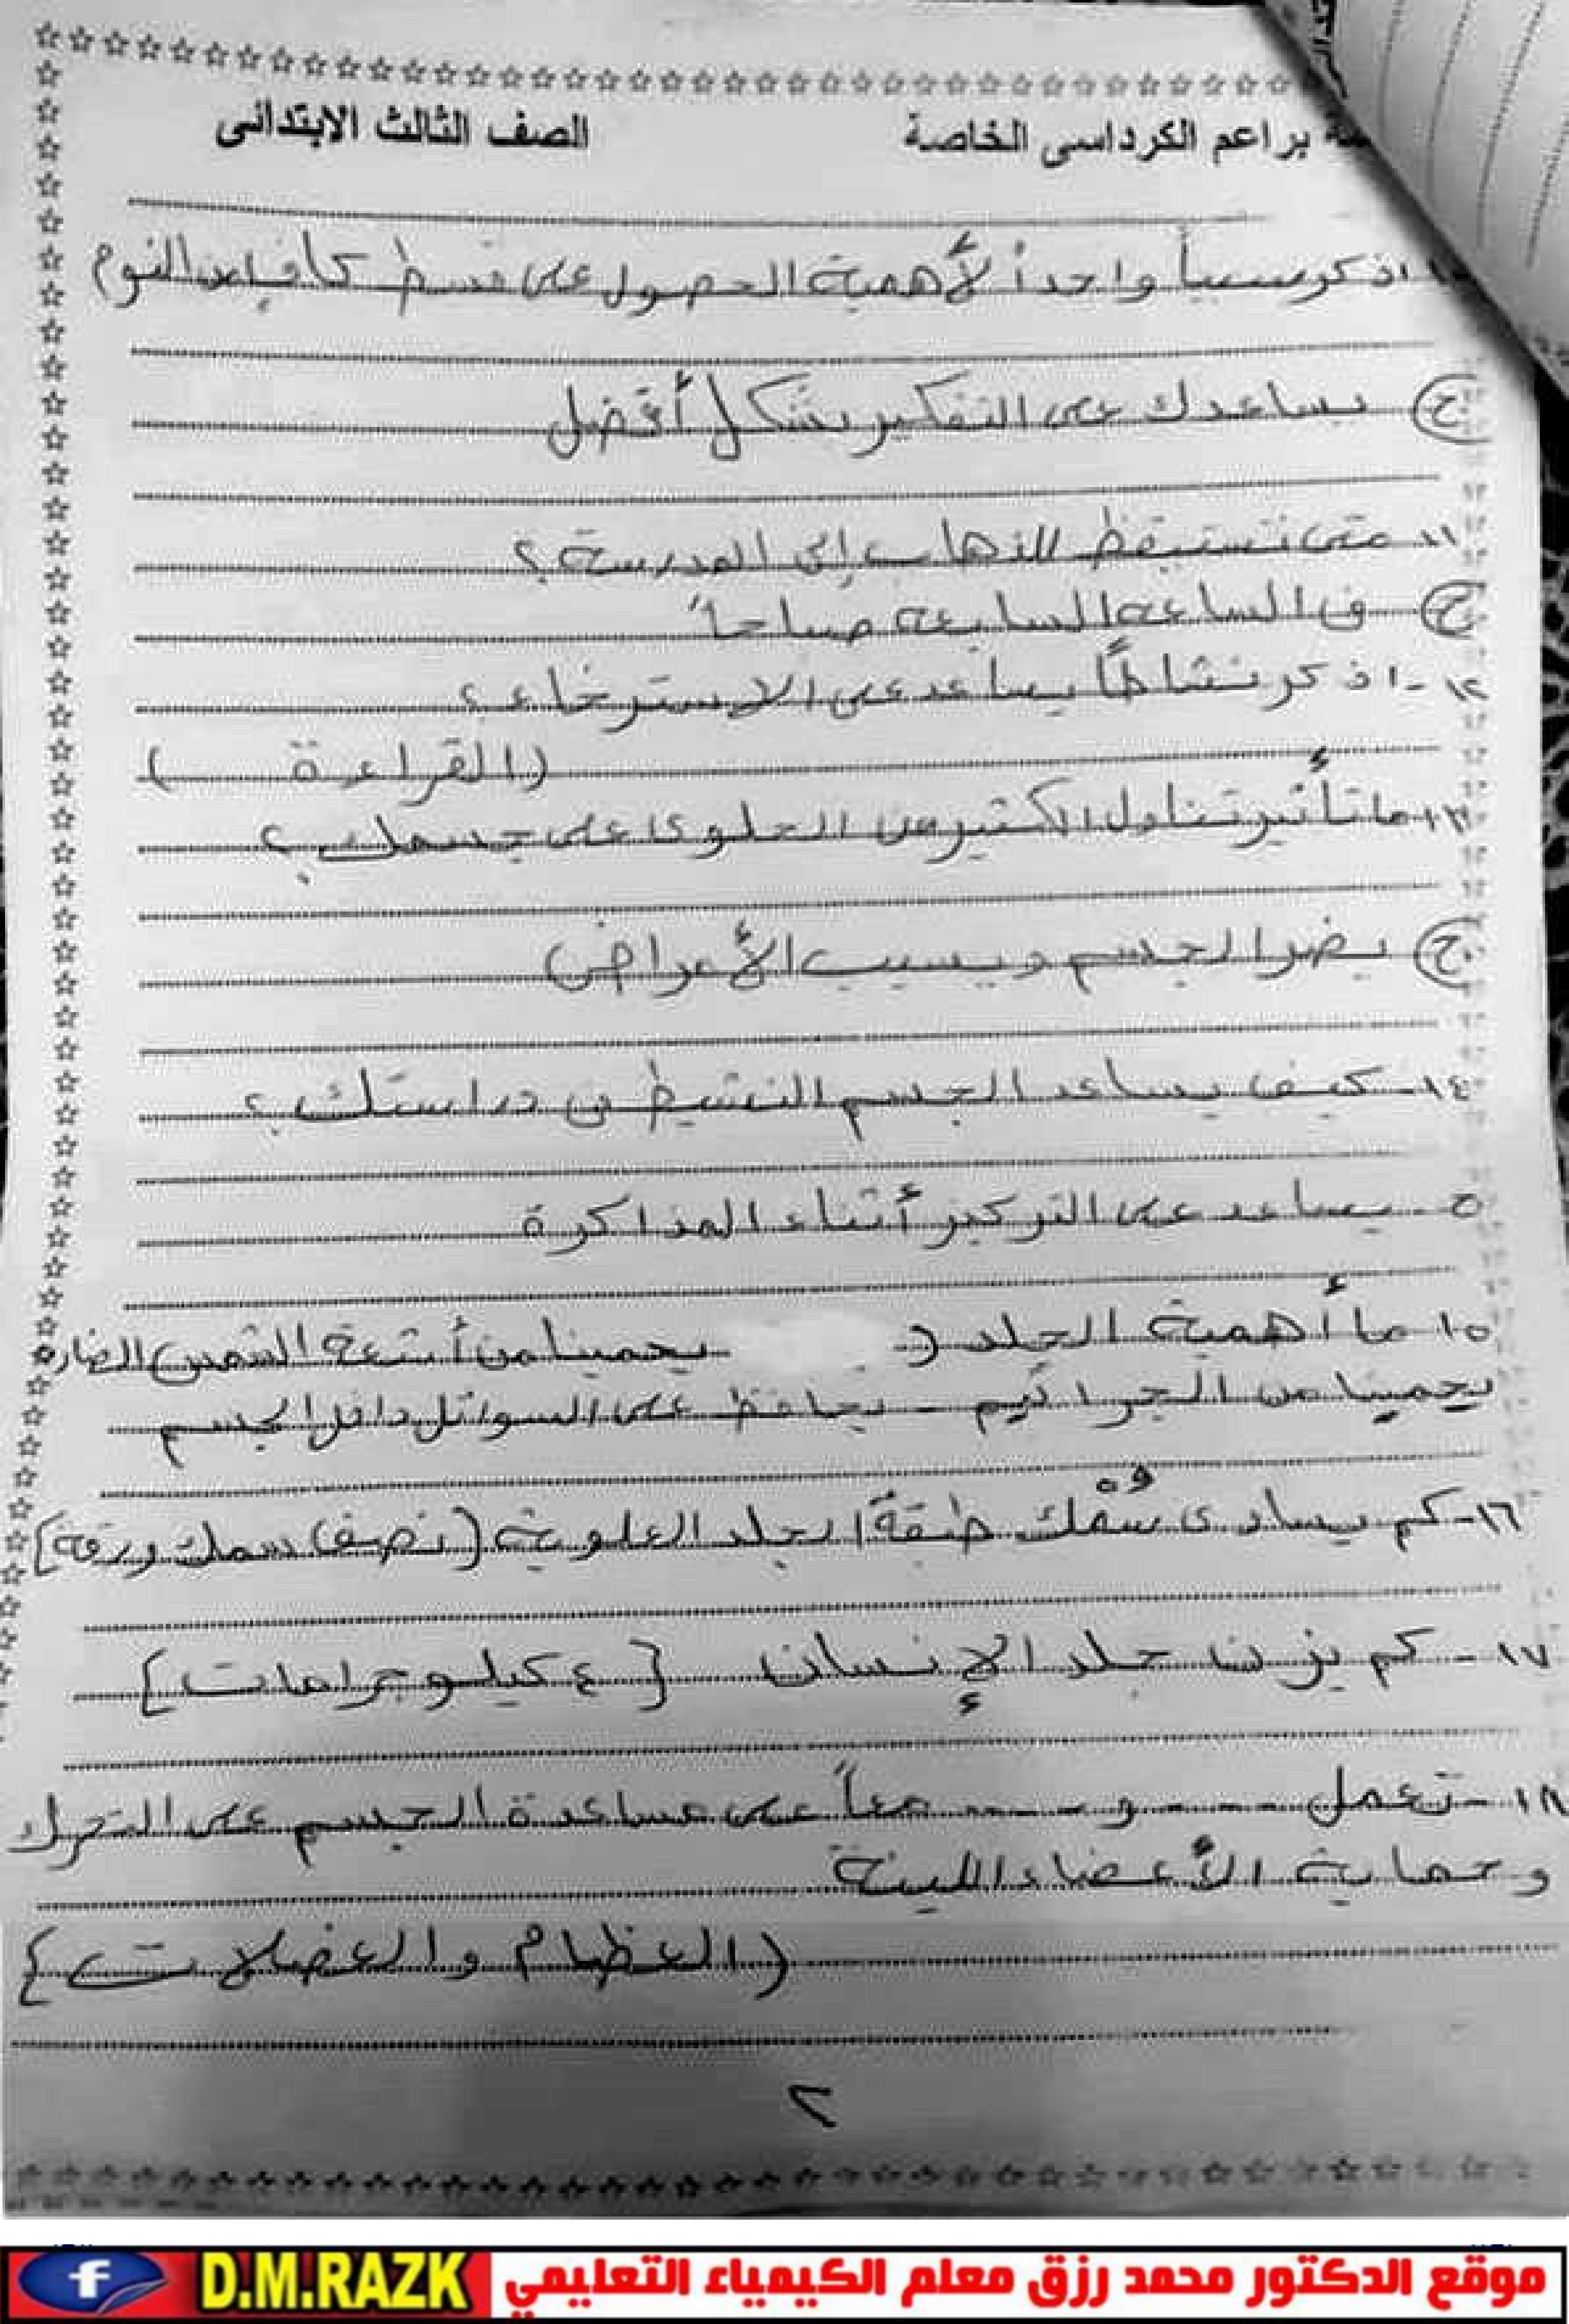 براعم الكرداسى الخاصة
الصف الثالث الابتدائى
اذكر سبباً واحداً لأهمية الحصول على قسط كافٍ من النوم
ج يساعدك على التفكير بشكل أفضل
١١- متى تستيقظ للذهاب إلى المدرسة؟
ج فى الساعة السابعة صباحاً
١٢- اذكر نشاطاً يساعد على الاسترخاء؟
(القراءة)
١٣- ما تأثير تناول الكثير من الحلوى على جسمك؟
ج يضر الجسم ويسبب الأمراض
١٤- كيف يساعد الجسم النشيط فى دراستك؟
ج- يساعد على التركيز أثناء المذاكرة
١٥- ما أهمية الجلد ( يحمينا من أشعة الشمس الضارة
يحمينا من الجراثيم - يحافظ على السوائل داخل الجسم
١٦- كم يساوى سُمْك طبقة الجلد العلوية (نصف سمك ورقة}
١٧- كم يزن جلد الإنسان {٤ كيلو جرامات}
١٨- تعمل ---- و ---- معاً على مساعدة الجسم على التحرك
وحماية الأعضاء اللينة
(العظام والعضلات}
٢
D.M.RAZK موقع الدكتور محمد رزق معلم الكيمياء التعليمي